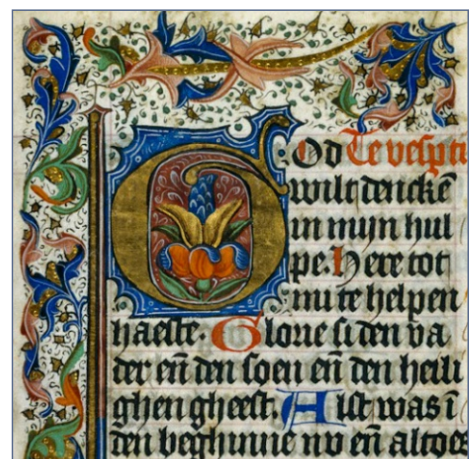 God Te vespti
wilt dencke̅
in mijn hul
pe. Here tot
mi te helpen
haeste. Glorie si den va
der en̅ den soen en̅ den heili
ghen gheest. Alst was i̅
den beghinne nv en̅ altoes